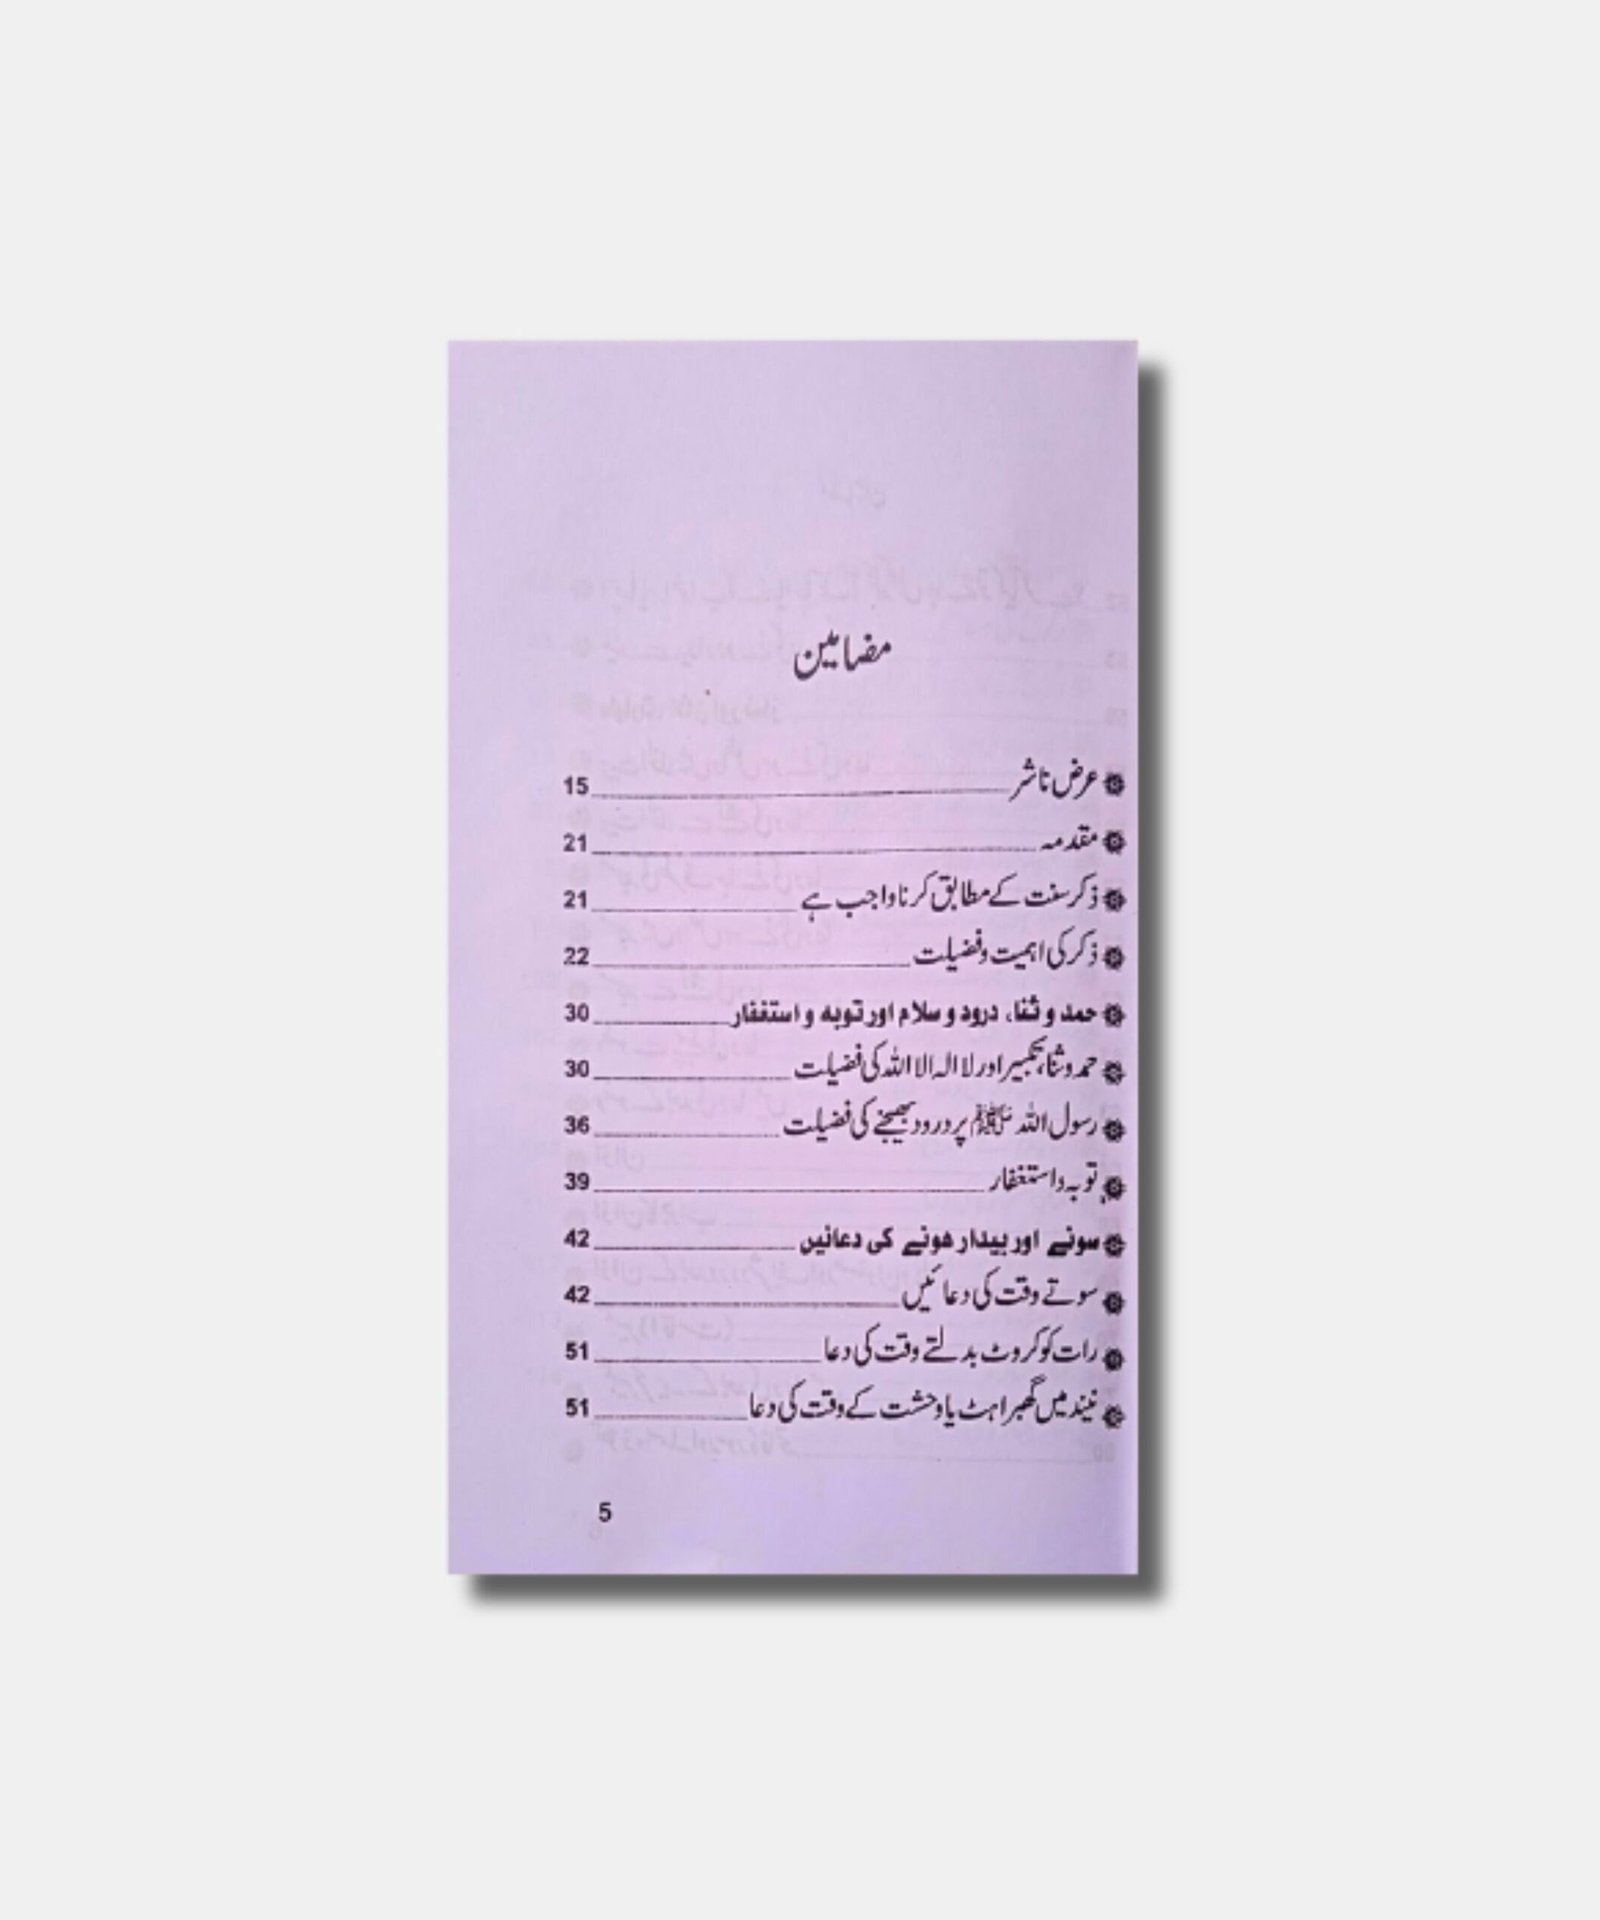 مضامین
عرض ناشر 15
مقدمہ 21
ذکر سنت کے مطابق کرنا واجب ہے 21
ذکر کی اہمیت و فضیلت 22
حمد و ثناء، درود و سلام اور توبہ و استغفار 30
حمد و ثنا، تکبیر اور لا الہ الا اللہ کی فضیلت 30
رسول اللہ ﷺ پر درود بھیجنے کی فضیلت 36
توبہ و استغفار 39
سونے اور بیدار ہونے کی دعائیں 42
سوتے وقت کی دعائیں 42
رات کو کروٹ بدلتے وقت کی دعا 51
نیند میں گھبراہٹ یا وحشت کے وقت کی دعا 51
5